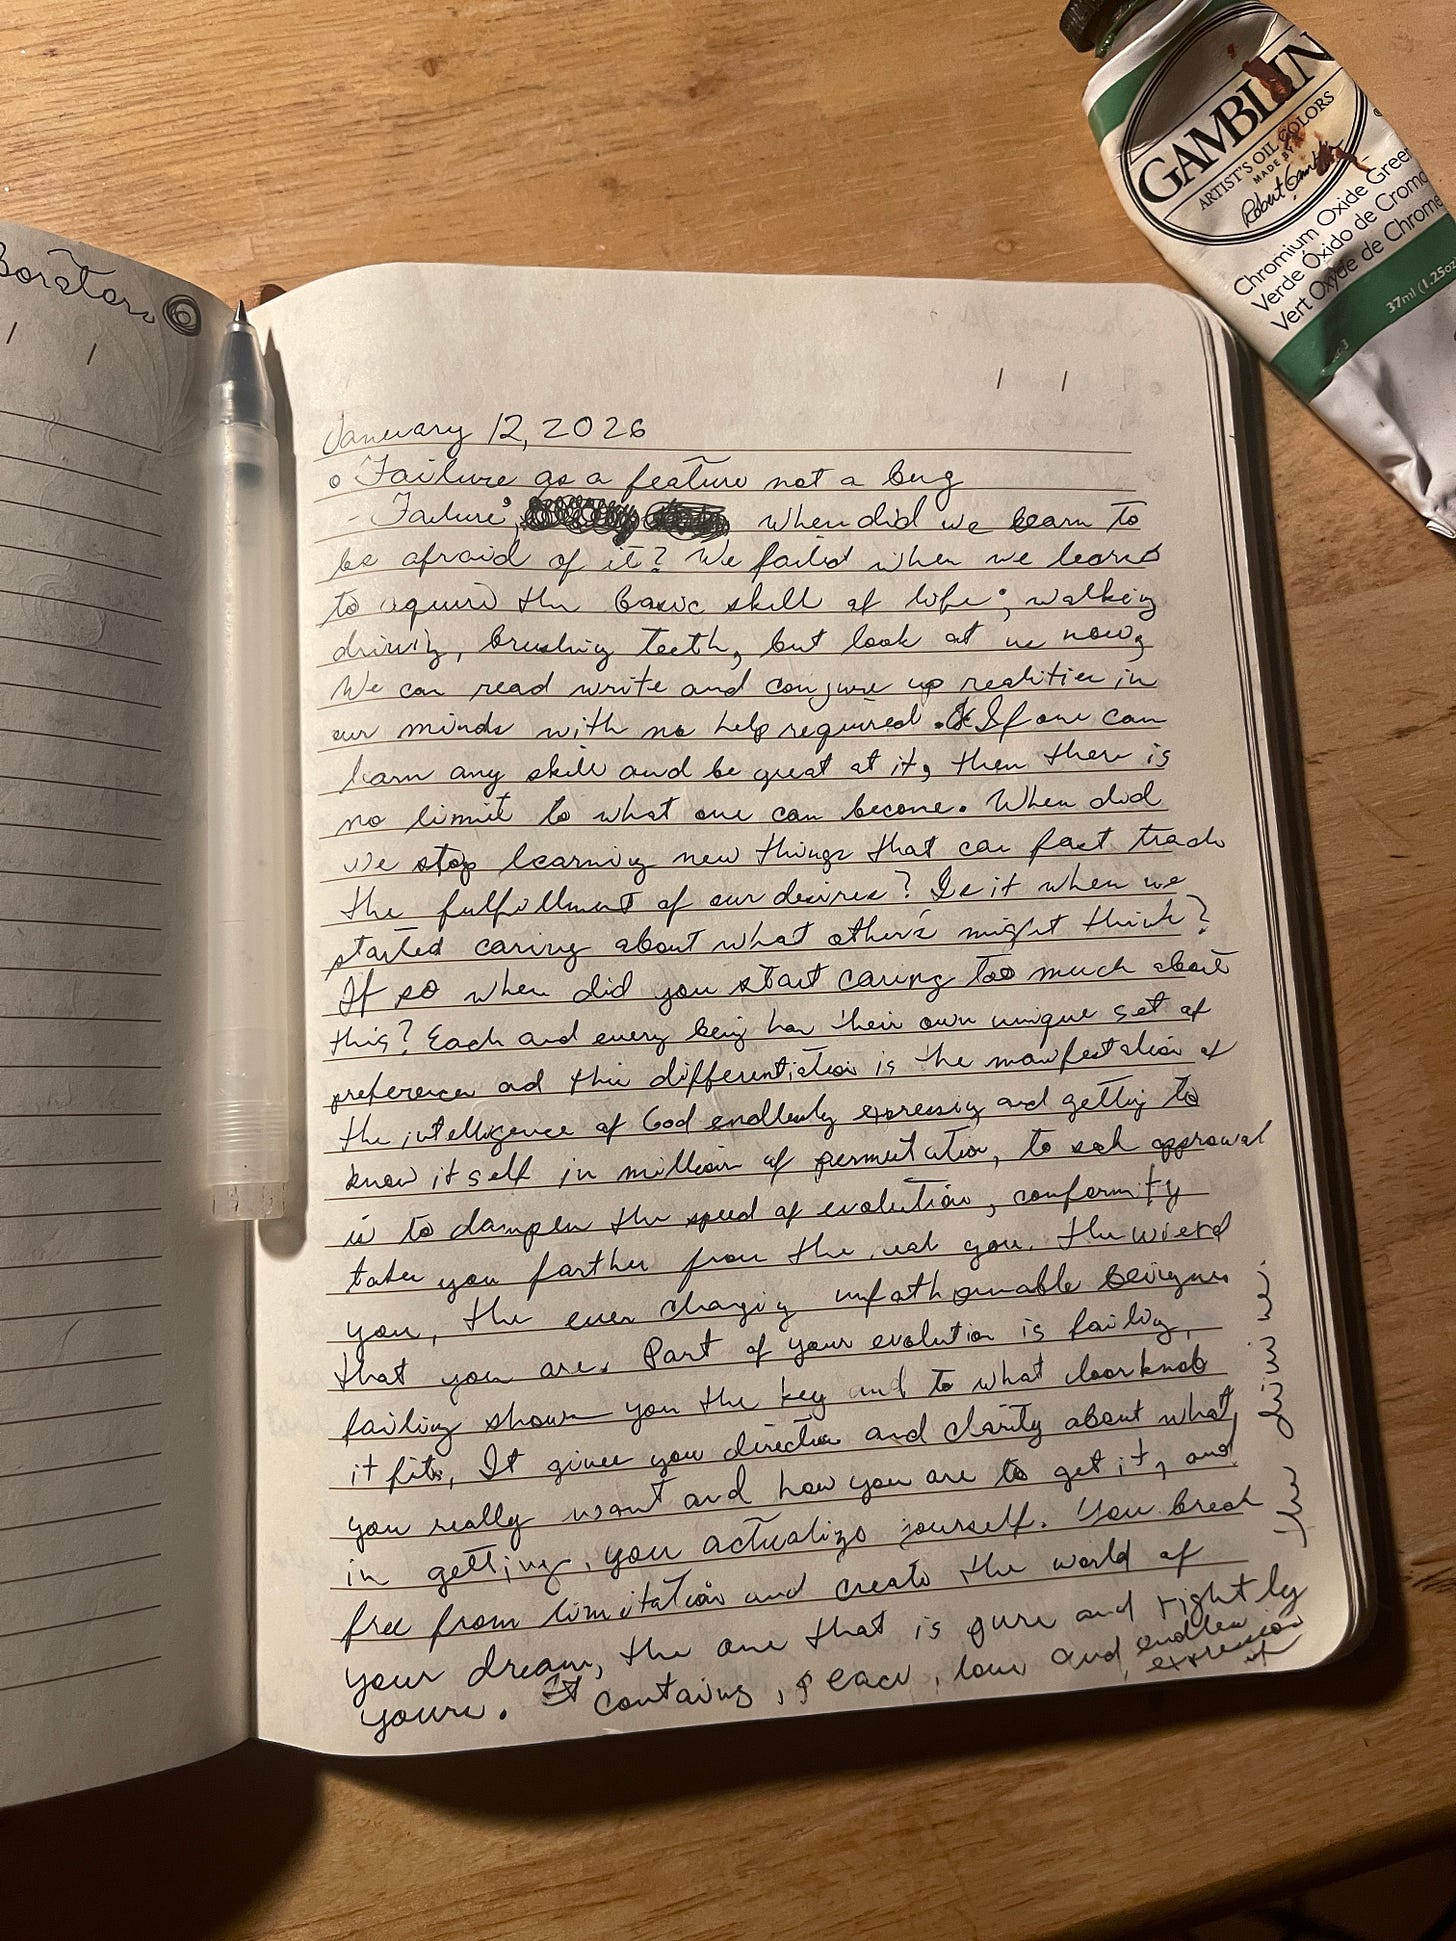 GAMBLIN
ARTIST'S OIL COLORS
MADE BY
Robert Gamblin
Chromium Oxide Green
Verde Óxido de Cromo
Vert Oxyde de Chrome
37ml (1.25oz
January 12, 2026
Failure as a feature not a bug
- Failure, when did we learn to
be afraid of it? We failed when we learnd
to aquire the basic skill of life; walking
driving, brushing teeth, but look at us now,
We can read write and conjure up realities in
our minds with no help required. If one can
learn any skill and be great at it, then there is
no limit to what one can become. When did
we stop learning new things that can fast track
the fulfillment of our desires? Is it when we
started caring about what other's might think?
If so when did you start caring too much about
this? Each and every being has their own unique set of
preferences and this differentiation is the manifestation of
the intelligence of God endlessly expressing and getting to
know itself in millions of permutation, to seek approval
is to dampen the speed of evolution, conformity
takes you farther from the real you. the wierd
you, the ever changing unfathomable
that you are. Part of your evolution is failing,
failing shows you the key and to what doorknob
it fits, It gives you direction and clarity about what
you really want and how you are to get it, and
in getting, you actualize yourself. You break
free from limitation and create the world of
your dream, the one that is pure and rightly
yours. It contains, peace, love and endless
expression
of